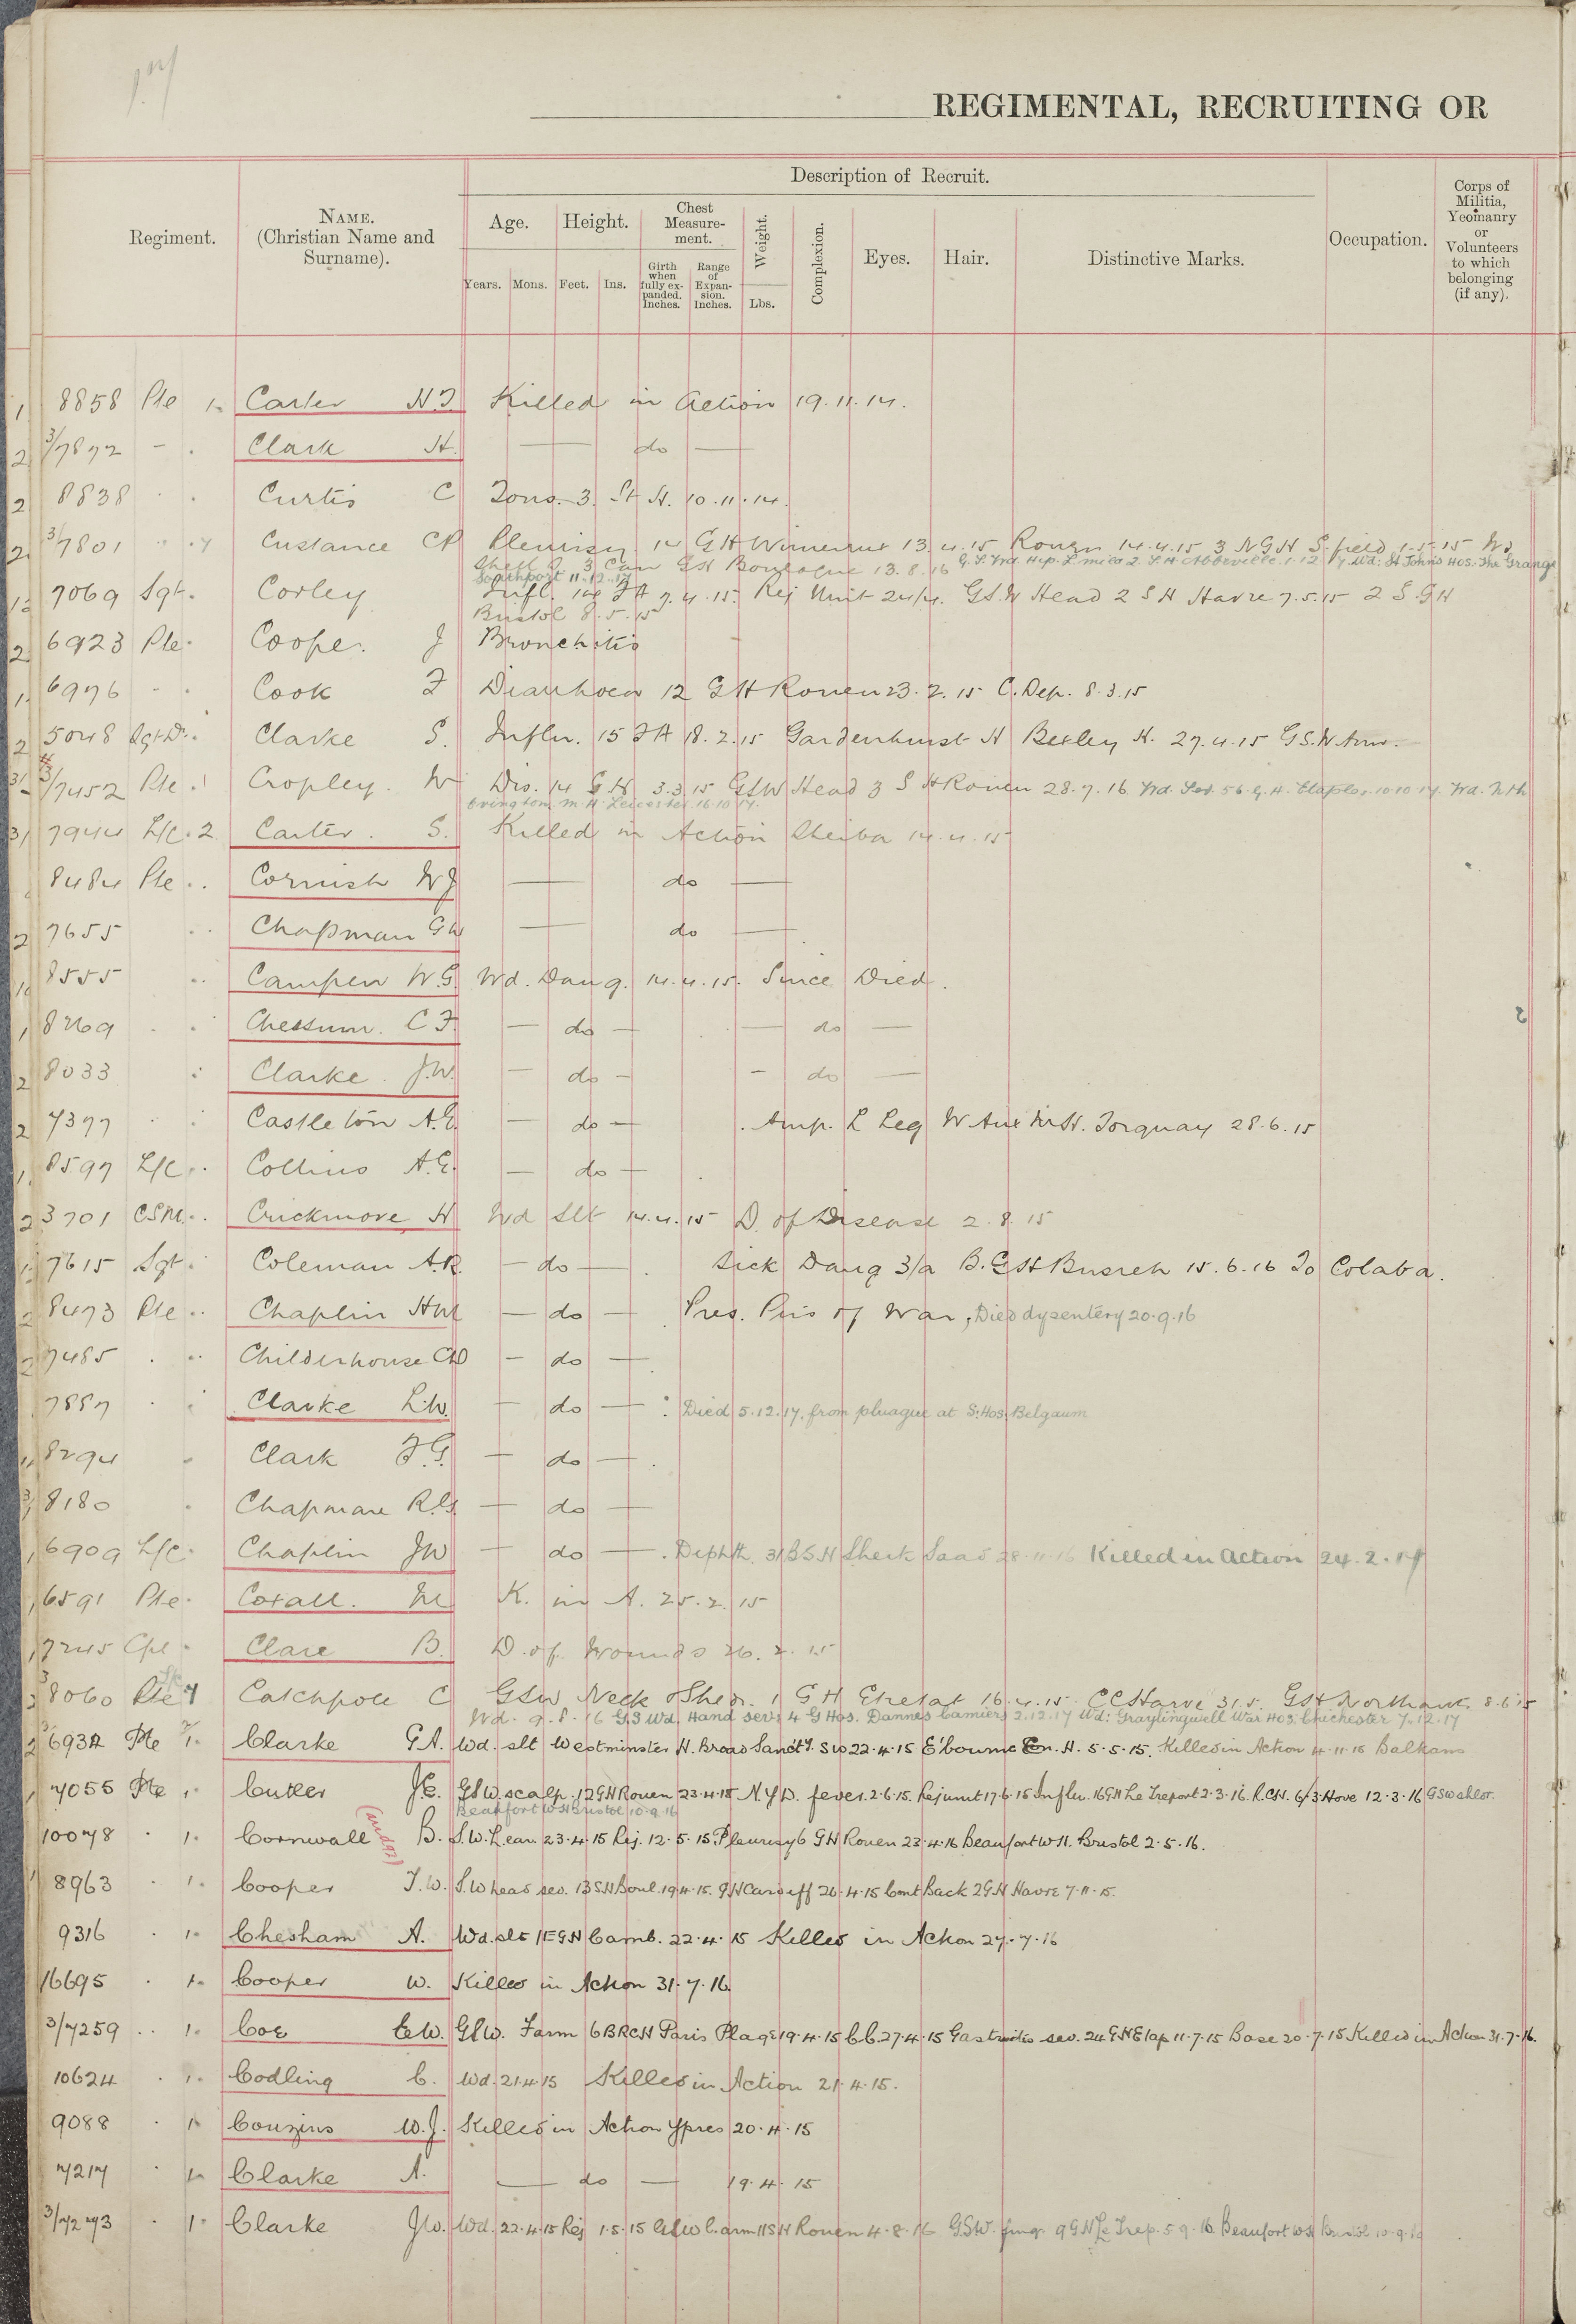 REGIMENTAL, RECRUITING OR
Description of Recruit.
Regiment.
NAME.
(Christian Name and
Surname).
Age.
Height.
Chest
Measure-
ment.
Weight.
Complexion.
Eyes.
Hair.
Distinctive Marks.
Occupation.
Corps of
Militia,
Yeomanry
or
Volunteers
to which
belonging
(if any).
Years.
Mons.
Feet.
Ins.
Girth
when
fully ex-
panded.
Inches.
Range
of
Expan-
sion.
Inches.
Lbs.
1 8858 Pte 1. Carter H.J. Killed in Action 19.11.14.
2 3/7872 - . Clark H. — do —
2 8838 . . Curtis C Tons. 3. St H. 10.11.14.
2 3/7801 Custance CP Pleurisy 14 GH Wimereux 13.4.15 Rouen 14.4.15 3 N G H S.field 1.5.15 Wd
Shell 3 Can GH Boulogne 13.8.16 Abbeville 1.12.17 Wd: St John's Hos. The Grange
Southport 11.12.17
7069 Sgt. Corley Infl. 14 FA 7.4.15. Rej Unit 24/4. G.S.W Head 2 S H Havre 7.5.15 2 S.G H
Bristol 8.5.15
2 6923 Pte. Cooper. J Bronchitis
1 6976 - . Cook F Diarrhoea 12 GH Rouen 23.2.15 C. Dep. 8.3.15
2 5048 Sgt Dr. Clarke S. Influ. 15 FA 18.2.15 Gardenhurst H Bexley H. 27.4.15 G.S.W Arm.
3/7452 Pte . Cropley. W Dis. 14 G H 3.3.15 GSW Head 3 S H Rouen 28.7.16 Wd. 56 G.H. Etaples 10.10.17. Wd. Nth
Evington M H Leicester 16.10.17.
3/ 7944 L/C. 2 Carter. S. Killed in Action Sheiba 14.4.15
8484 Pte . . Cornish W J — do —
2 7655 . . Chapman G W — do —
8555 . . Campen W.G. Wd. Dang. 14.4.15. Since Died.
1 8269 . . Chessum. C F. — do — — do —
2 8033 : Clarke. J.W. — do — - do —
2 7377 . . Castleton A.E. — do — . Amp. L Leg W Aux M.H. Torquay 28.6.15
1 8597 L/C . . Collins A.E. — do —
2 3701 CSM . . Crickmore H Wd Slt 14.4.15 D. of Disease 2.8.15
7615 Sgt . Coleman A.R. — do — . Sick Dang 3/a B.G H Busreh 15.6.16 To Colaba.
2 8473 Pte . . Chaplin H W — do — Pres. Pris of War, Died dysentery 20.9.16
2 7485 . . Childerhouse — do —
7887 . . Clarke L.W. — do — : Died 5.12.17. from pluague at S. Hos. Belgaum
8294 . Clark F.G. — do — .
8180 . Chapman R.G. — do —
1 6909 L/C. Chaplin J W — do — . Diphth. 31 B S H Sheik Saad 28.11.16 Killed in action 24.2.17
1 6591 Pte. Coxall. M K. in A. 25.2.15
1 7245 Cpl . Clare B. D. of Wounds 26.2.15
2 3/8060 Pte Catchpole C GSW Neck & Shdr. 1 G H Etretat 16.4.15. CC Havre 31.5. GSH Northants 8.6.15
Wd. 9.8.16 G.S Wd. Hand sev: 4 G Hos. Dannes Camiers 2.12.17 Wd: Graylingwell War Hos. Chichester 7.12.17
2 3/6932 Pte 1. Clarke G A. Wd. slt Westminster H. Broad Sanct'y. S W 22.4.15 E'bourne H. 5.5.15. Killed in Action 4.11.15 Balkans
1 7055 Pte 1. Cutler J.E. GSW. scalp. 12 G H Rouen 23.4.15 N.Y.D. fever. 2.6.15. Rej unit 17.6.15 Influ. 16 G H Le Treport 2.3.16. R.C.H. 6/3 Hove 12.3.16 GSW shlor.
Beaufort W H Bristol 10.9.16
10078 . 1. Cornwall B. S.W. L ear. 23.4.15 Rej. 12.5.15. Pleurisy 6 G H Rouen 23.4.16 Beaufort W H. Bristol 2.5.16.
8963 . 1. Cooper T.W. S.W head sev. 13 S H Boul. 19.4.15. G H Cardiff 26.4.15 Cont Back 2 G H Havre 7.11.15.
9316 . 1. Chesham A. Wd. slt 1 E G H Camb. 22.4.15 Killed in Action 27.7.16
16695 . 1. Cooper W. Killed in Action 31.7.16.
3/7259 . . 1. Coe C.W. GSW. Farm 6 BRCH Paris Plage 19.4.15 C.C. 27.4.15 Gastritis sev. 24 G.H Etap 11.7.15 Base 20.7.15 Killed in Action 31.7.16.
10624 . 1. Codling C. Wd. 21.4.15 Killed in Action 21.4.15.
9088 . 1. Couzins W.J. Killed in Action Ypres 20.4.15
7217 . 1. Clarke A. — do — 19.4.15
3/7273 . 1. Clarke J W. Wd. 22.4.15 Rej 1.5.15 GSW L. arm 11 S H Rouen 4.8.16 G.S.W. fing. 9 G H Le Trep. 5.9.16 Beaufort W H Bristol 10.9.16